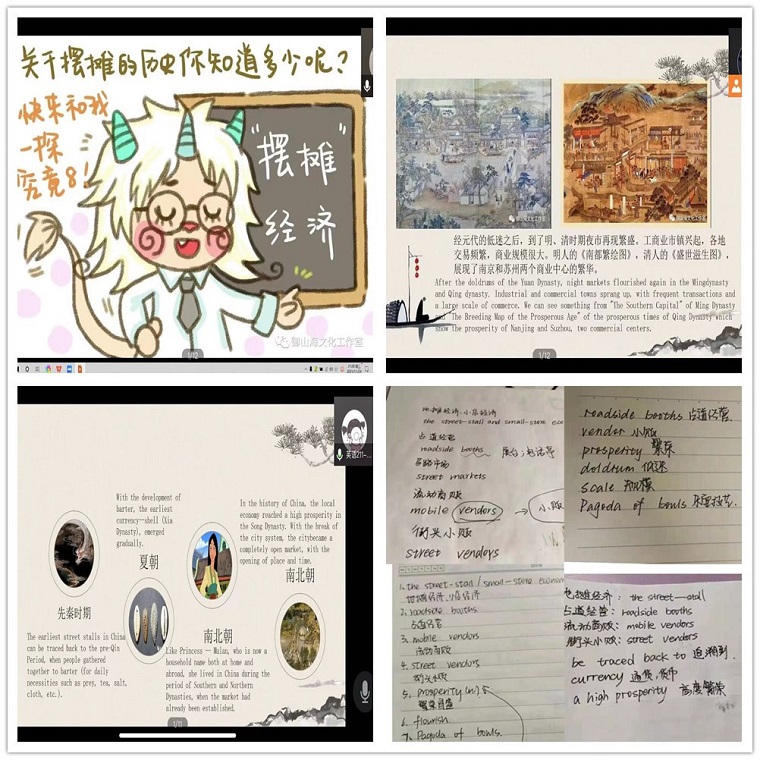 关于摆摊的历史你知道多少呢？
快来和我
一探
究竟8！
"摆摊"
经济
御山海文化工作室
1/12
经元代的低迷之后，到了明、清时期夜市再现繁盛。工商业市镇兴起，各地
交易频繁，商业规模很大。明人的《南都繁绘图》，清人的《盛世滋生图》，
展现了南京和苏州两个商业中心的繁华。
After the doldrums of the Yuan Dynasty, night markets flourished again in the Mingdynasty
and Qing dynasty. Industrial and commercial towns sprang up, with frequent transactions and
a large scale of commerce. We can see something from "The Southern Capital" of Ming Dynasty
and "The Breeding Map of the Prosperous Age" of the prosperous times of Qing Dynasty which
show the prosperity of Nanjing and Suzhou, two commercial centers.
1/12
With the development of
barter, the earliest
currency--shell (Xia
Dynasty), emerged
gradually.
夏朝
In the history of China, the local
economy reached a high prosperity in
the Song Dynasty. With the break of
the city system, the citybecame a
completely open market, with the
opening of place and time.
南北朝
先秦时期
The earliest street stalls in China
can be traced back to the pre-Qin
Period, when people gathered
together to barter (for daily
necessities such as prey, tea, salt,
cloth, etc.).
南北朝
Like Princess -- Mulan, who is now a
household name both at home and
abroad, she lived in China during the
period of Southern and Northern
Dynasties, when the market had
already been established.
1/11
英语211-
地摊经济,小店经济
the street-stall and small-store eco
占道经营
roadside booths
street markets
流动商贩
mobile vendors → 小贩
街头小贩
street vendors
roadside booths 占道经营
vendor 小贩
prosperity 繁荣
doldrum 低迷
scale 规模
Pagoda of bowls
1. the street-stall / small-store econom
地摊经济,小店经济
2. roadside booths
占道经营
3. mobile vendors
流动商贩
4. street vendors
街头小贩
5. prosperity (n.)
6. flourish
7. Pagoda of bowls.
地摊经济: the street-stall
占道经营: roadside booths
流动商贩: mobile vendors
街头小贩: street vendors
be traced back to 追溯到
currency 通货,货币
a high prosperity 高度繁荣